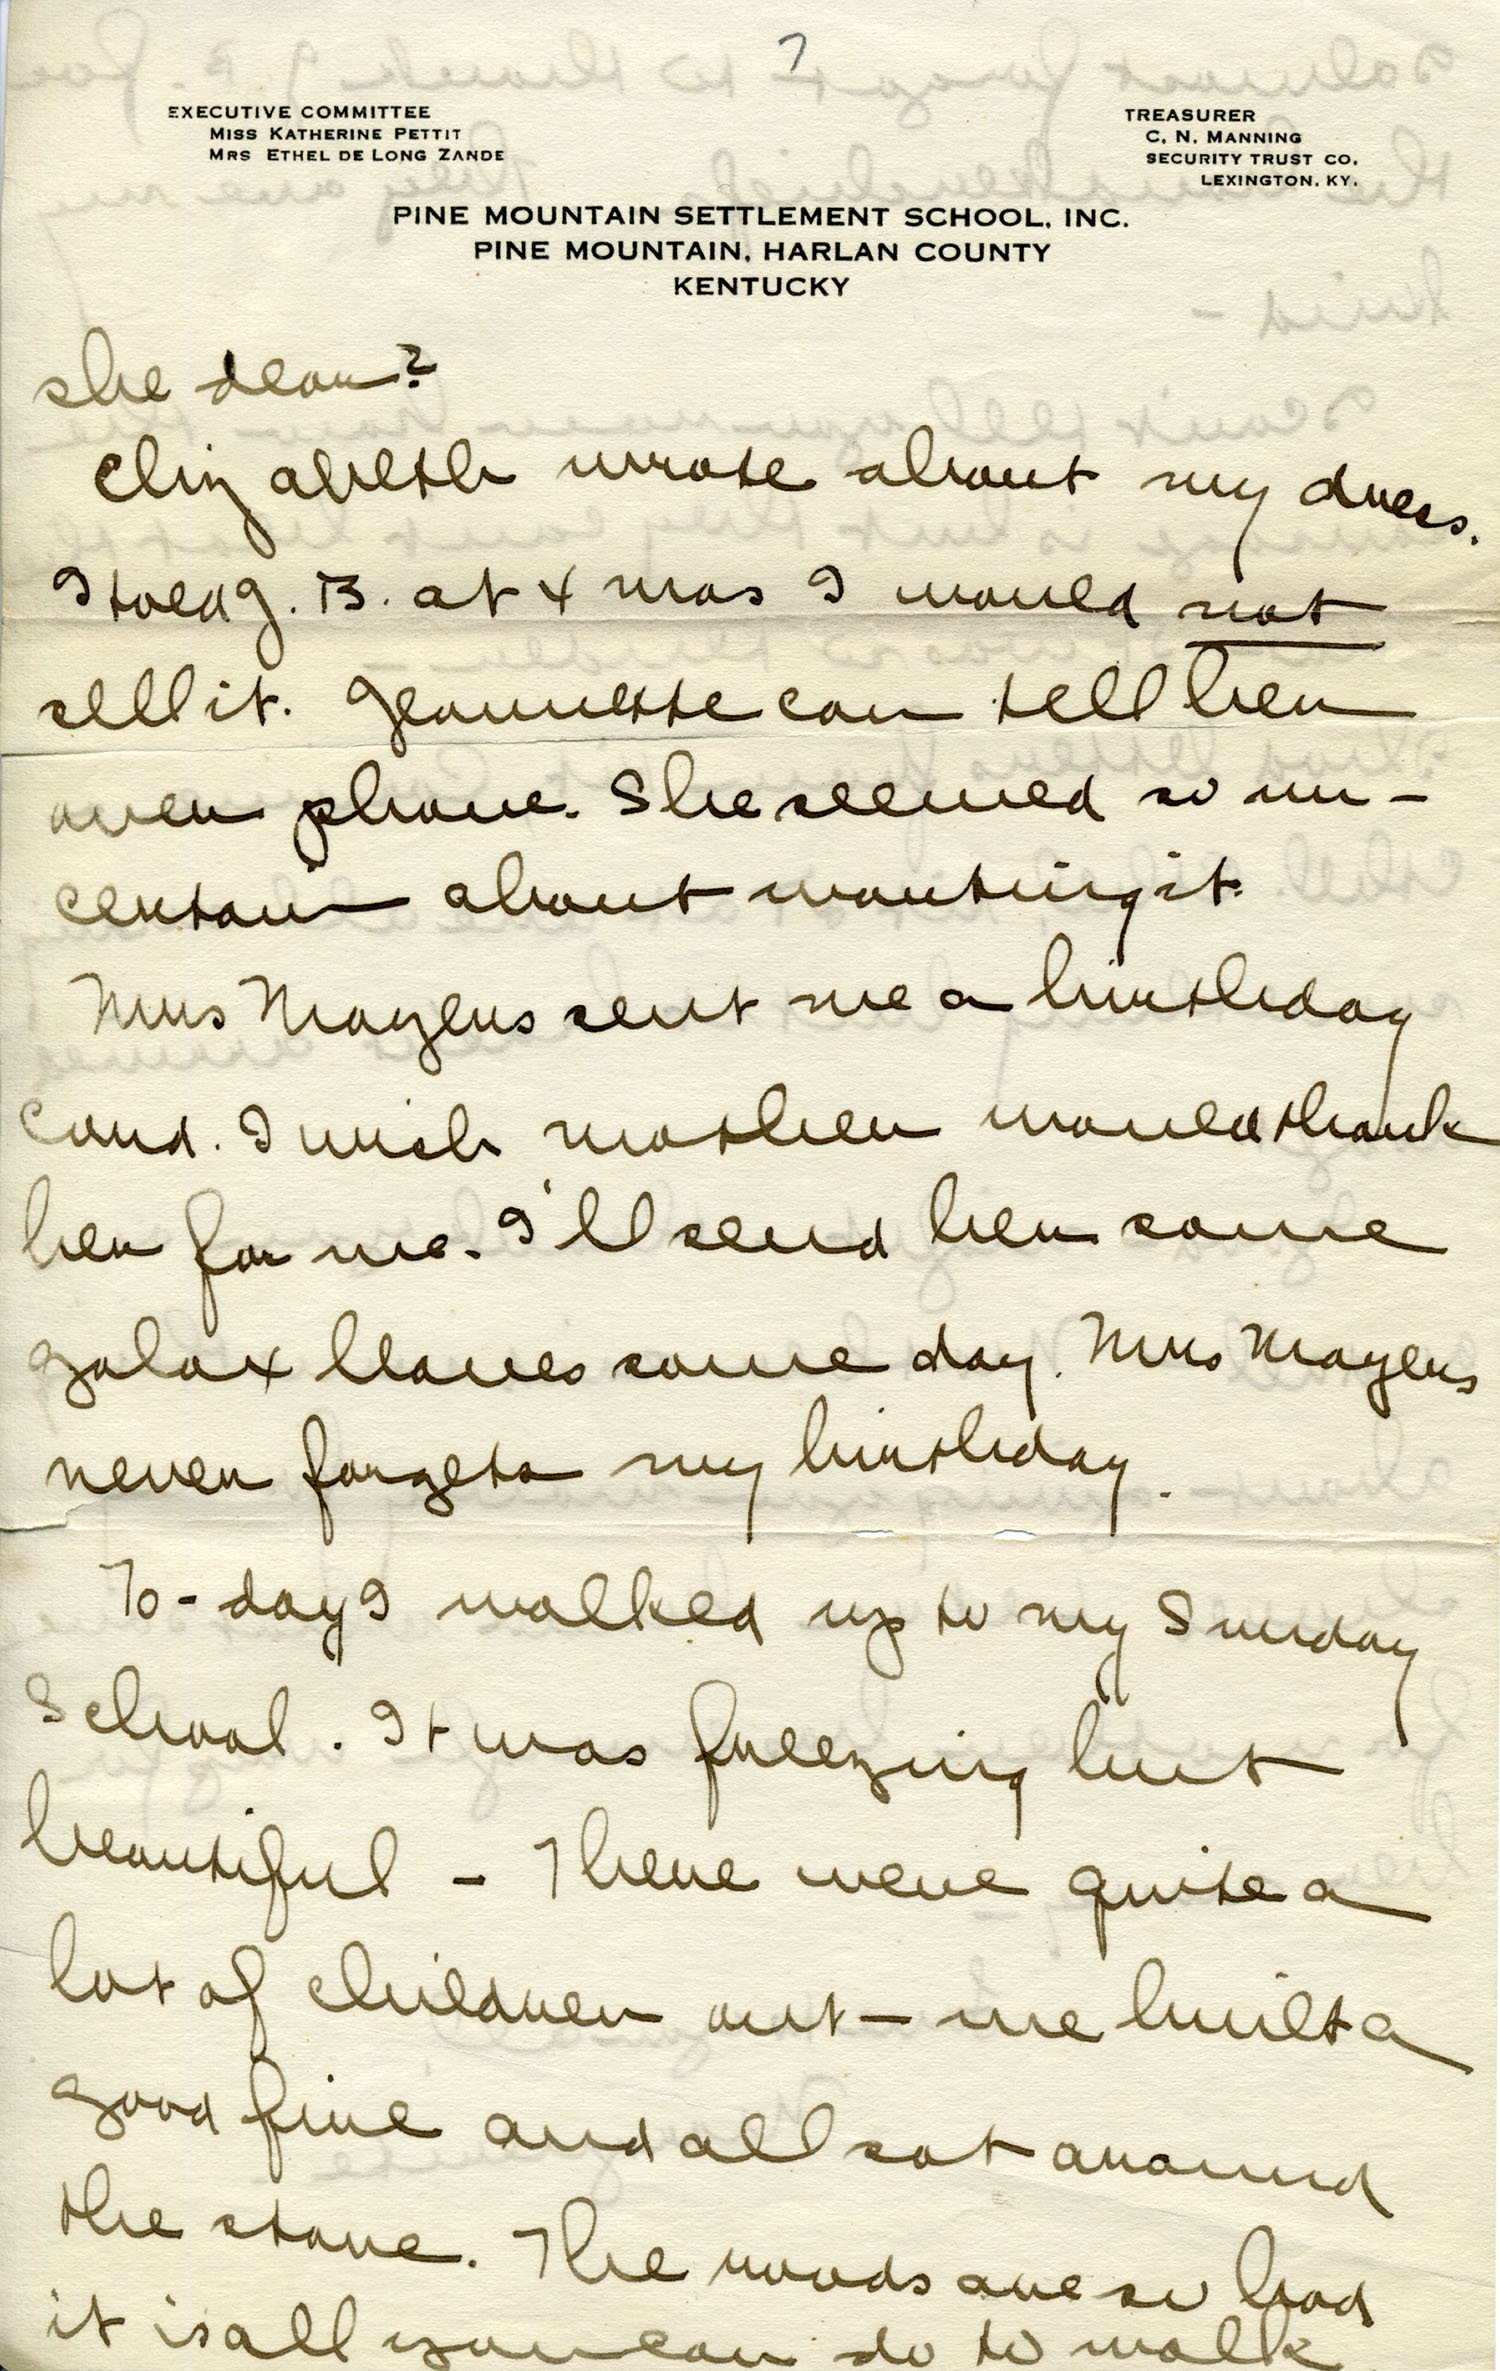 7
EXECUTIVE COMMITTEE
MISS KATHERINE PETTIT
MRS ETHEL DE LONG ZANDE
TREASURER
C. N. MANNING
SECURITY TRUST CO.
LEXINGTON, KY.
PINE MOUNTAIN SETTLEMENT SCHOOL, INC.
PINE MOUNTAIN, HARLAN COUNTY
KENTUCKY
she dear?
Elizabeth wrote about my dress.
I told G. B. at Xmas I would not
sell it. Jeannette can tell her
over phone. She seemed so un-
certain about wanting it.
Mrs Mayers sent me a birthday
card. I wish mother would thank
her for me. I'll send her some
galax leaves some day. Mrs Mayers
never forgets my birthday.
To-day I walked up to my Sunday
School. It was freezing but
beautiful - There were quite a
lot of children out - we built a
good fire and all sat around
the stove. The roads are so bad
it is all you can do to walk